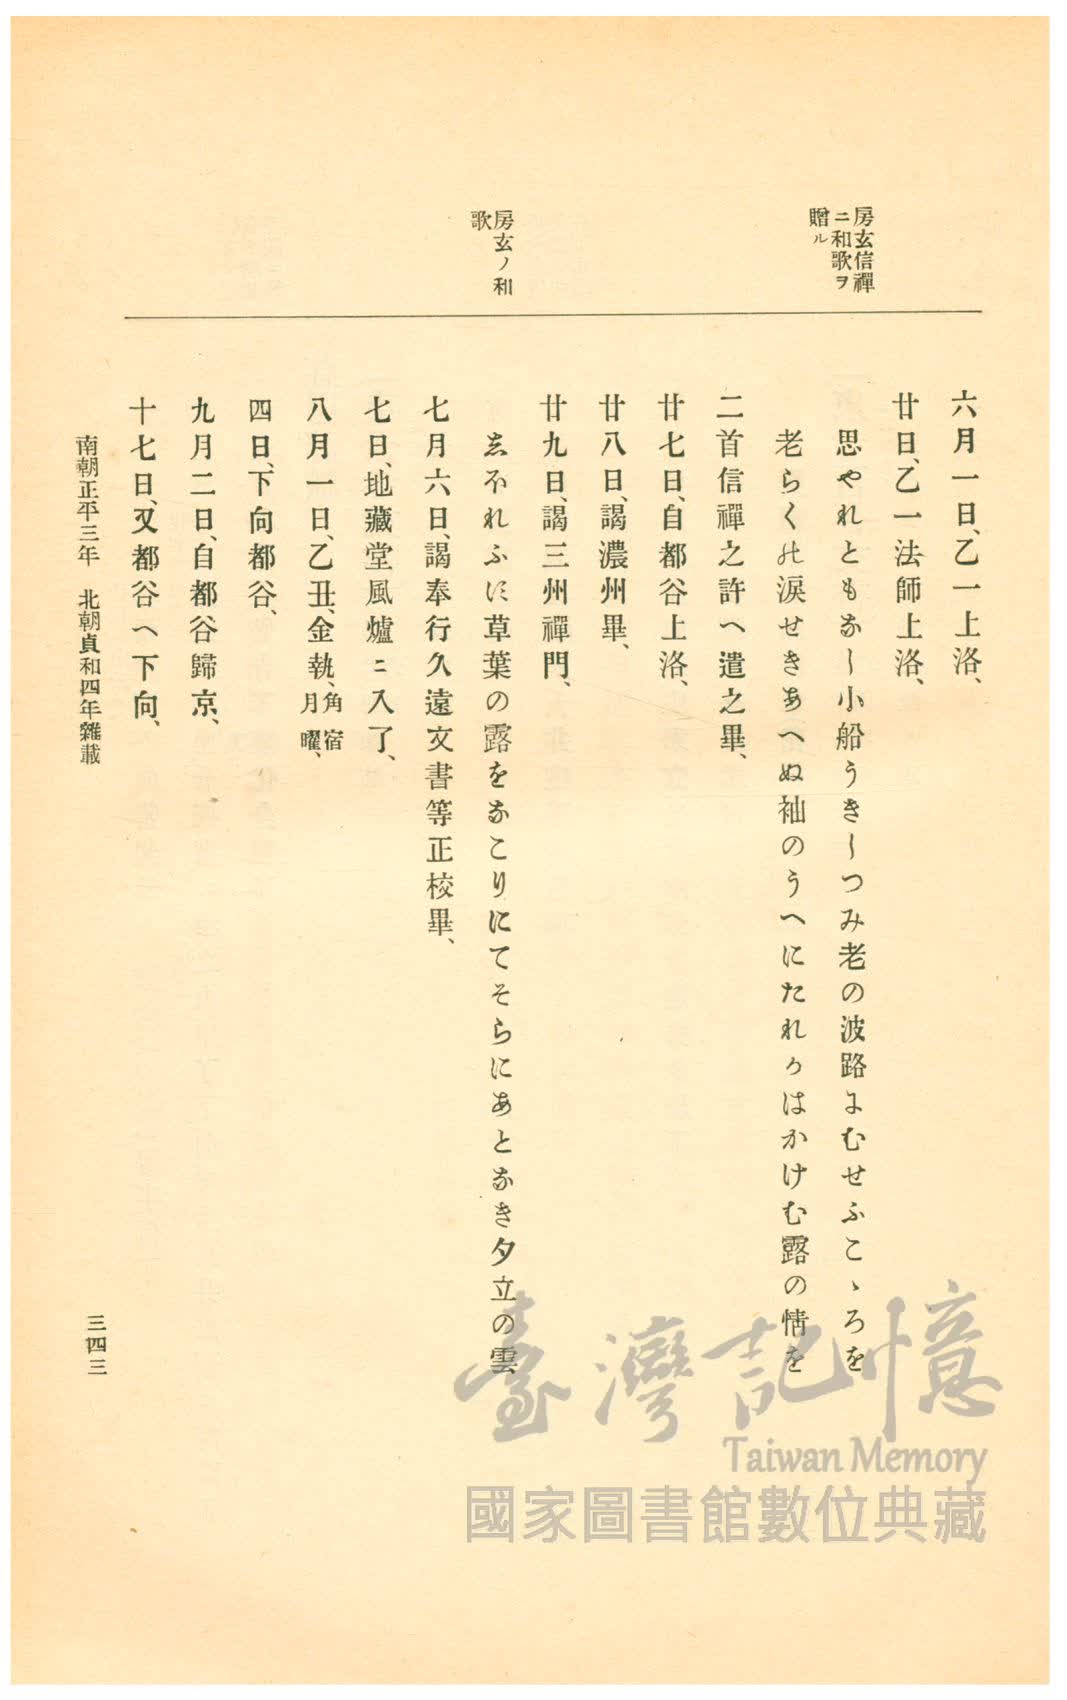 房玄信禪
ニ和歌ヲ
贈ル
房玄ノ和
歌
六月一日、乙一上洛、
廿日、乙一法師上洛、
思やれともなし小船うきしつみ老の波路にむせふこゝろを
老らくの涙せきあへぬ袖のうへにたれかはかけむ露の情を
二首信禪之許へ遣之畢、
廿七日、自都谷上洛、
廿八日、謁濃州畢、
廿九日、謁三州禪門、
しほれふに草葉の露をなこりにてそらにあとなき夕立の雲
七月六日、謁奉行久遠文書等正校畢、
七日、地藏堂風爐ニ入了、
八月一日、乙丑、金執、角宿月曜、
四日、下向都谷、
九月二日、自都谷歸京、
十七日、又都谷へ下向、
南朝正平三年 北朝貞和四年雜載
三四三
臺灣記憶
Taiwan Memory
國家圖書館數位典藏